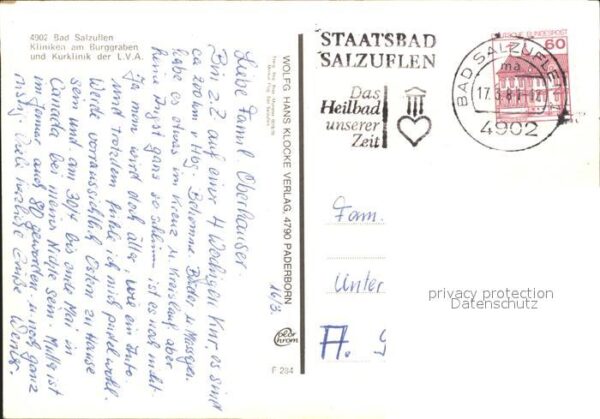 4902 Bad Salzuflen
Kliniken am Burggraben
und Kurklinik der L.V.A.
16/3.
Liebe Famil Oberhauser.
Bin z.Z. auf einer 4 Wochigen Kur, es sind
ca 200 km v. Hbg. Bekomme Bäder u. Massagen.
habe es etwas im Kreuz u. Kreislauf aber
keine Angst ganz so schlimm ist es noch nicht.
Ja man wird doch älter, wie ein Auto.
und trotzdem fühle ich mich pudelwohl.
Werde vorraussichtlich Ostern zu Hause
sein und am 30/4 bis ende Mai in
Canada bei meiner Nichte sein. Mutti ist
im Januar auch 80 geworden u. noch ganz
rüstig. Viele herzliche Grüße
WOLFG. HANS KLOCKE VERLAG, 4790 PADERBORN
color
chrom
F 284
STAATSBAD
SALZUFLEN
Das
Heilbad
unserer
Zeit
BAD SALZUFLEN
ma
17.3.8
4902
DEUTSCHE BUNDESPOST
60
Fam.
Unter
A.
privacy protection
Datenschutz